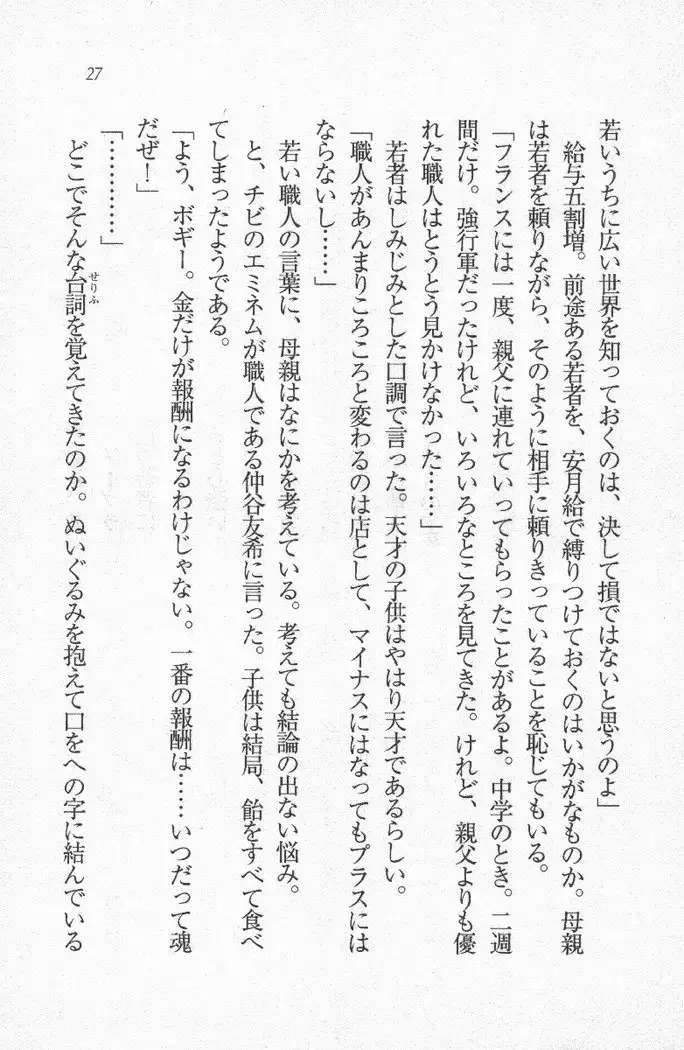 27
若いうちに広い世界を知っておくのは、決して損ではないと思うのよ」
給与五割増。前途ある若者を、安月給で縛りつけておくのはいかがなものか。母親
は若者を頼りながら、そのように相手に頼りきっていることを恥じてもいる。
「フランスには一度、親父に連れていってもらったことがあるよ。中学のとき。二週
間だけ。強行軍だったけれど、いろいろなところを見てきた。けれど、親父よりも優
れた職人はとうとう見かけなかった……」
若者はしみじみとした口調で言った。天才の子供はやはり天才であるらしい。
「職人があんまりころころと変わるのは店として、マイナスにはなってもプラスには
ならないし……」
若い職人の言葉に、母親はなにかを考えている。考えても結論の出ない悩み。
と、チビのエミネムが職人である仲谷友希に言った。子供は結局、飴をすべて食べ
てしまったようである。
「よう、ボギー。金だけが報酬になるわけじゃない。一番の報酬は……いつだって魂
だぜ！」
「…………」
どこでそんな台詞を覚えてきたのか。ぬいぐるみを抱えて口をへの字に結んでいる
せりふ